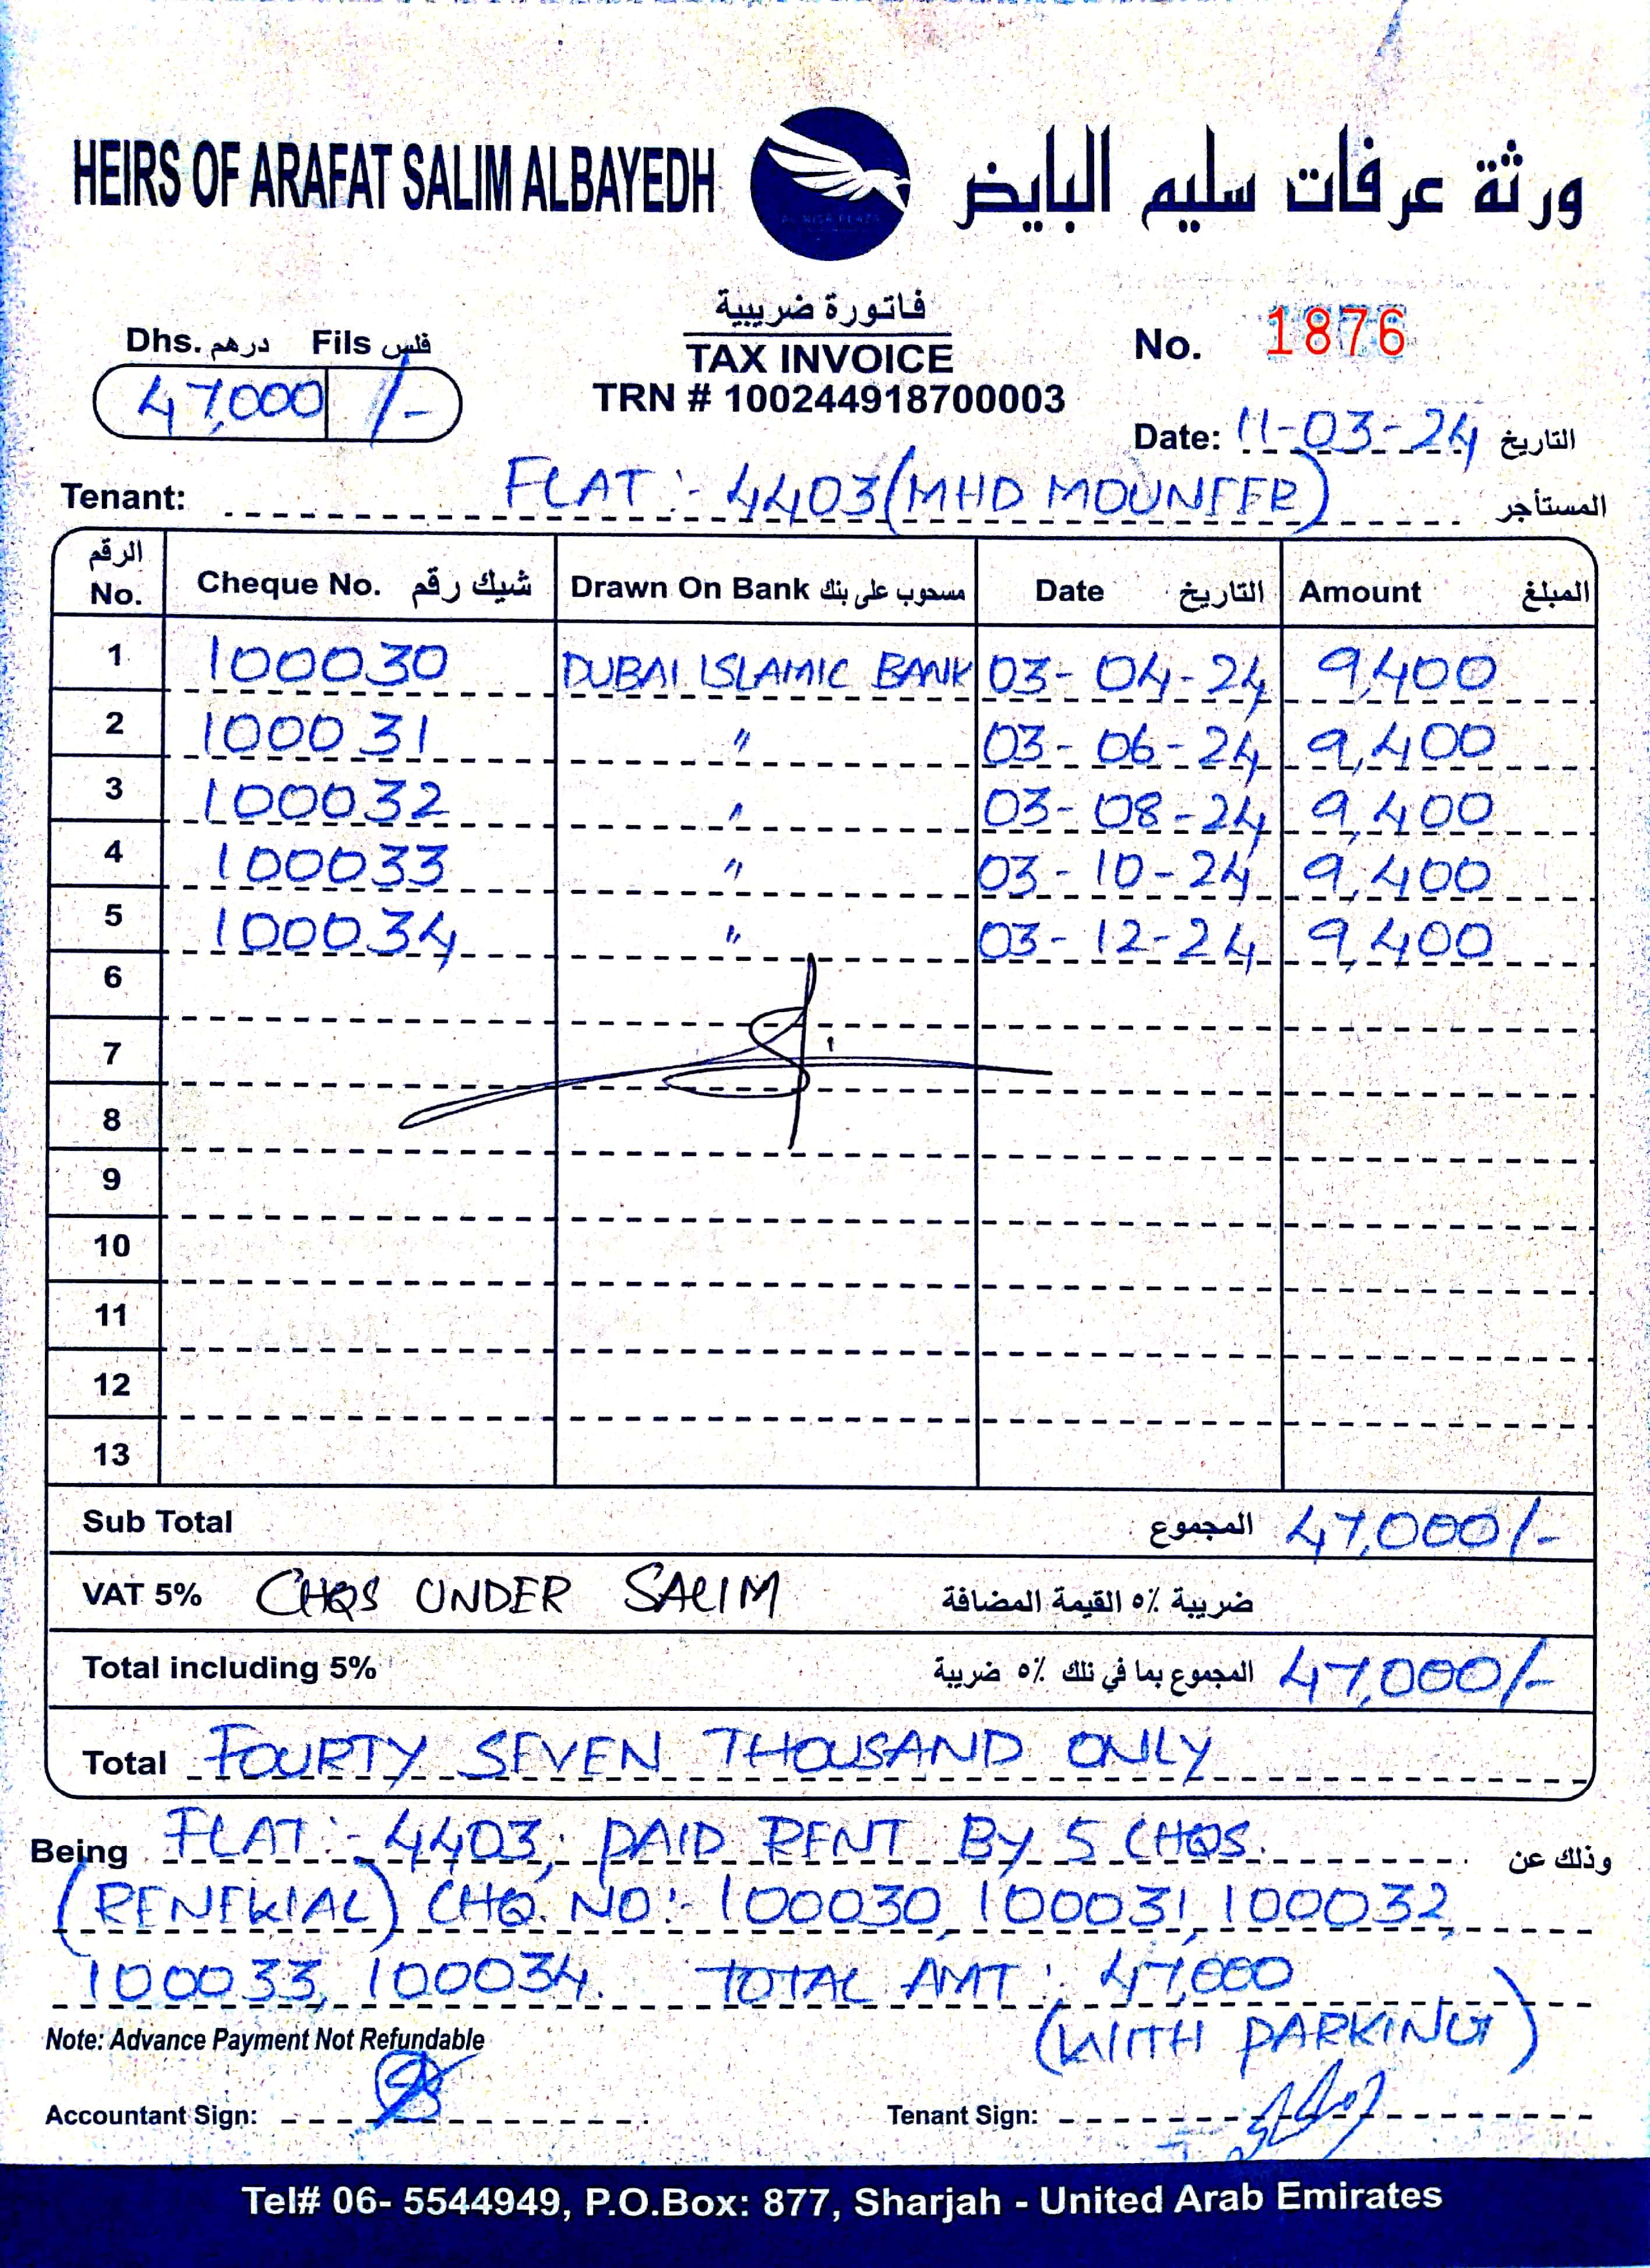 HEIRS OF ARAFAT SALIM ALBAYEDH ورثة عرفات سليم البايض
فاتورة ضريبية
TAX INVOICE
TRN # 100244918700003
Dhs. درهم Fils فلس
47,000 /-
No. 1876
Date: 11-03-24 التاريخ
Tenant: FLAT :- 4403 (MHD MOUNEER) المستأجر
الرقم No. Cheque No. شيك رقم Drawn On Bank مسحوب على بنك Date التاريخ Amount المبلغ
1 100030 DUBAI ISLAMIC BANK 03-04-24 9,400
2 100031 " 03-06-24 9,400
3 100032 " 03-08-24 9,400
4 100033 " 03-10-24 9,400
5 100034 " 03-12-24 9,400
6
7
8
9
10
11
12
13
Sub Total المجموع 47,000/-
VAT 5% CHQS UNDER SALIM ضريبة ٥٪ القيمة المضافة
Total including 5% المجموع بما في ذلك ٥٪ ضريبة 47,000/-
Total FOURTY SEVEN THOUSAND ONLY
Being FLAT :- 4403, PAID RENT BY 5 CHQS. وذلك عن
(RENEWAL) CHQ. NO :- 100030, 100031, 100032,
100033, 100034. TOTAL AMT : 47,000
(WITH PARKING)
Note: Advance Payment Not Refundable
Accountant Sign: Tenant Sign:
Tel# 06- 5544949, P.O.Box: 877, Sharjah - United Arab Emirates